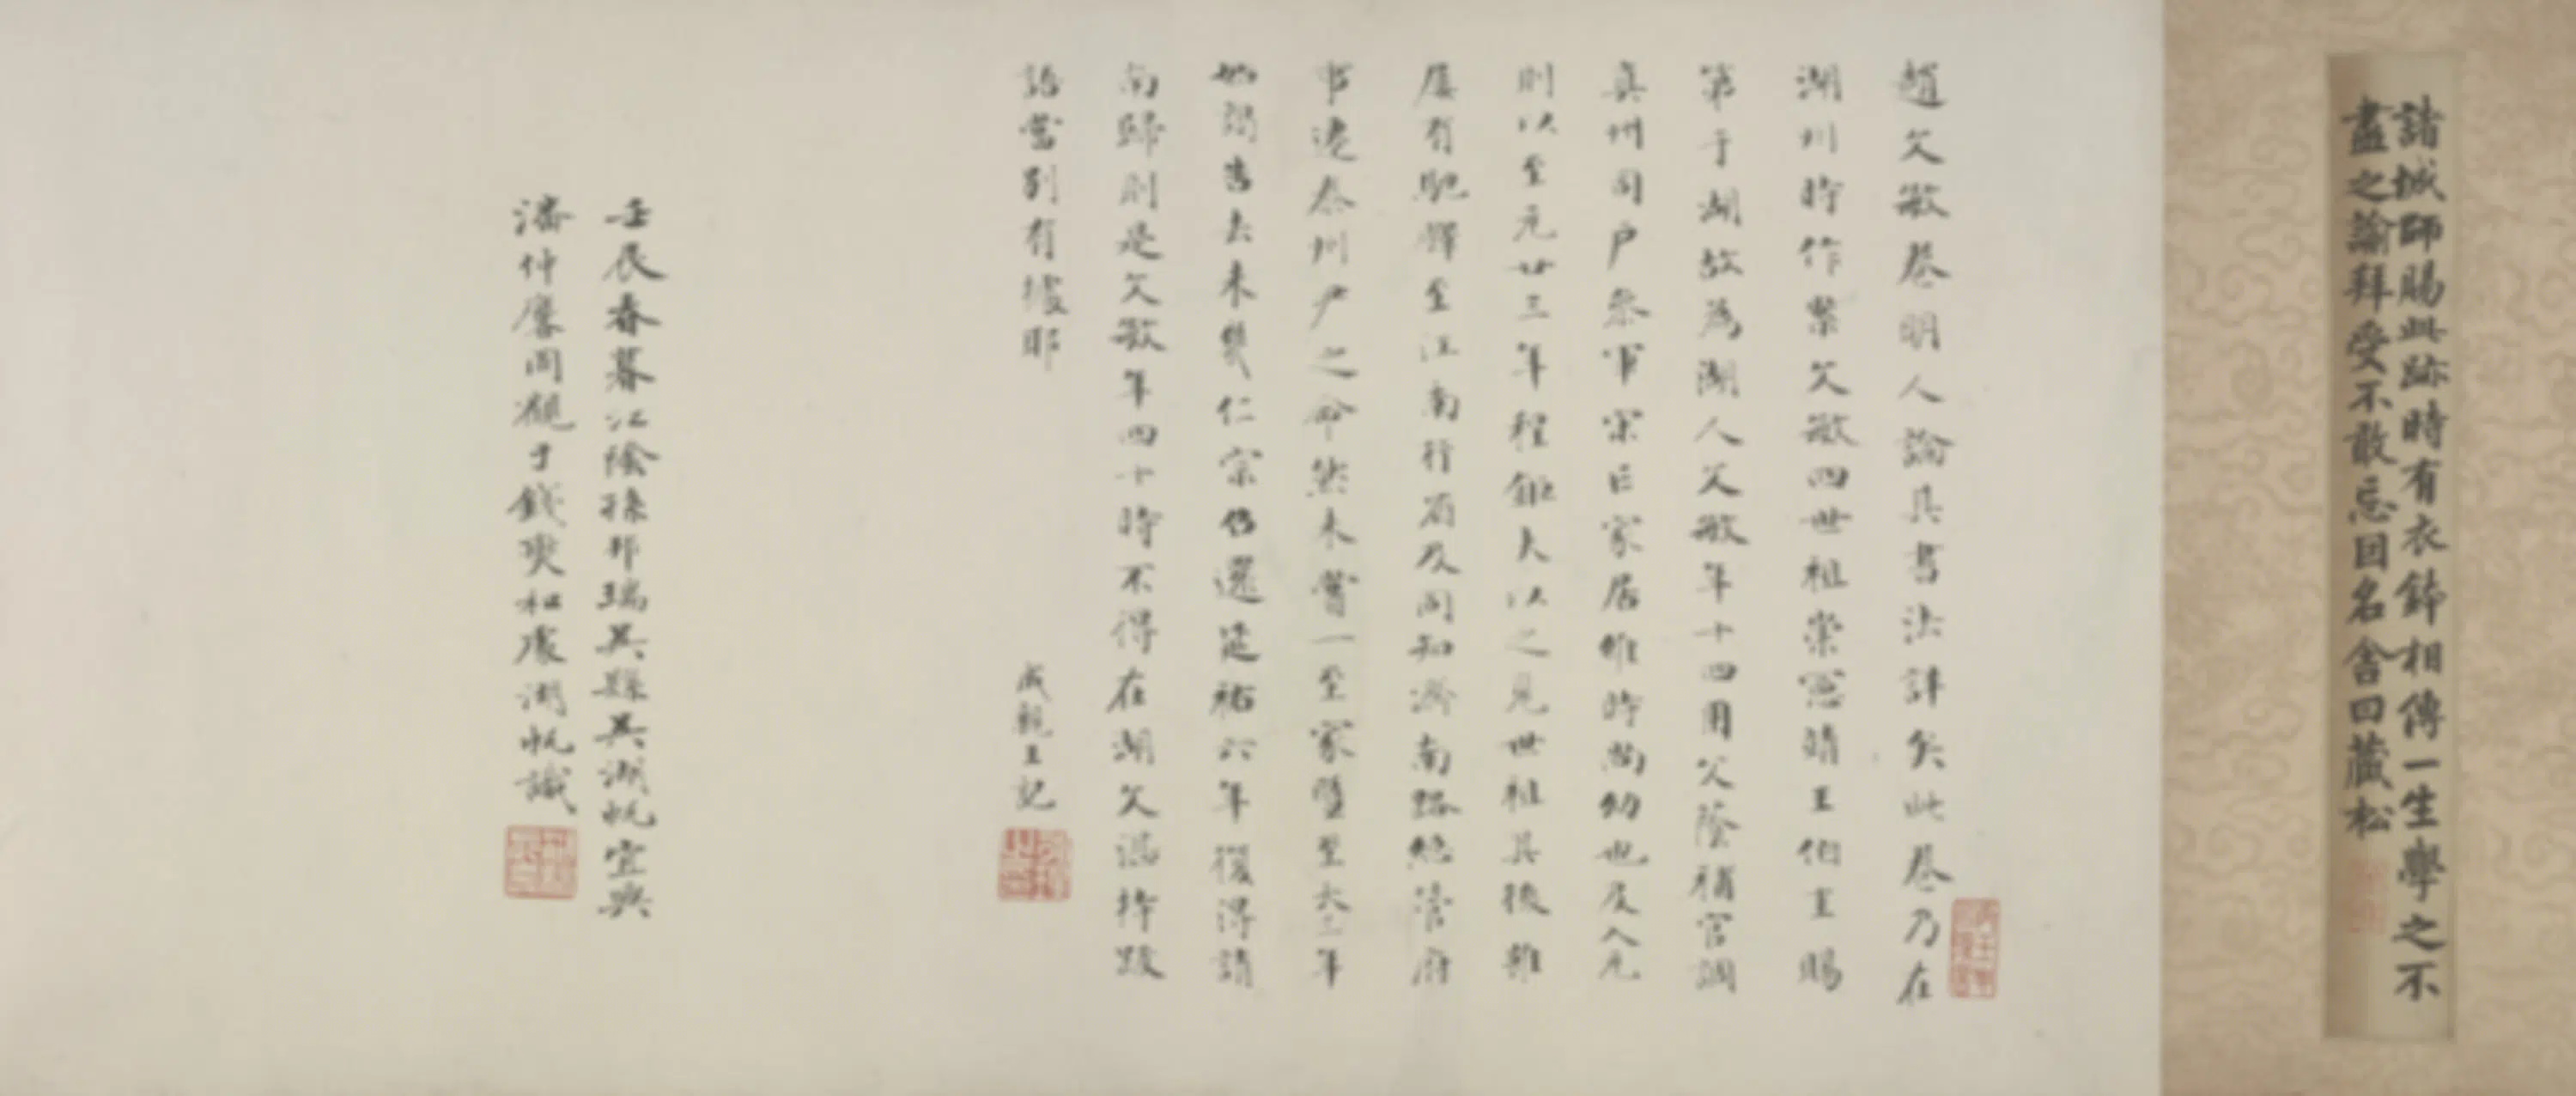 諸城師賜此跡時有衣鉢相傳一生學之不
盡之諭拜受不敢忘因名舍曰藏松
趙文敏卷明人論其書法詳矣此卷乃在
湖州時作案文敏四世祖崇憲靖王伯圭賜
第于湖故為湖人文敏年十四用父蔭補官調
真州司戶參軍宋亡家居維時尚幼也及入元
則以至元廿三年程鉅夫以之見世祖其後雖
屢有馳驛至江南行省及同知濟南路總管府
事遷泰州尹之命然未嘗一至家暨至大三年
始謁告去未幾仁宗召還延祐六年復得請
南歸則是文敏年四十時不得在湖文漪待跋
語當別有據耶
成親王記
壬辰春暮江陰孫邦瑞吳縣吳湖帆宜興
潘仲麐同觀于錢奐和處湖帆識